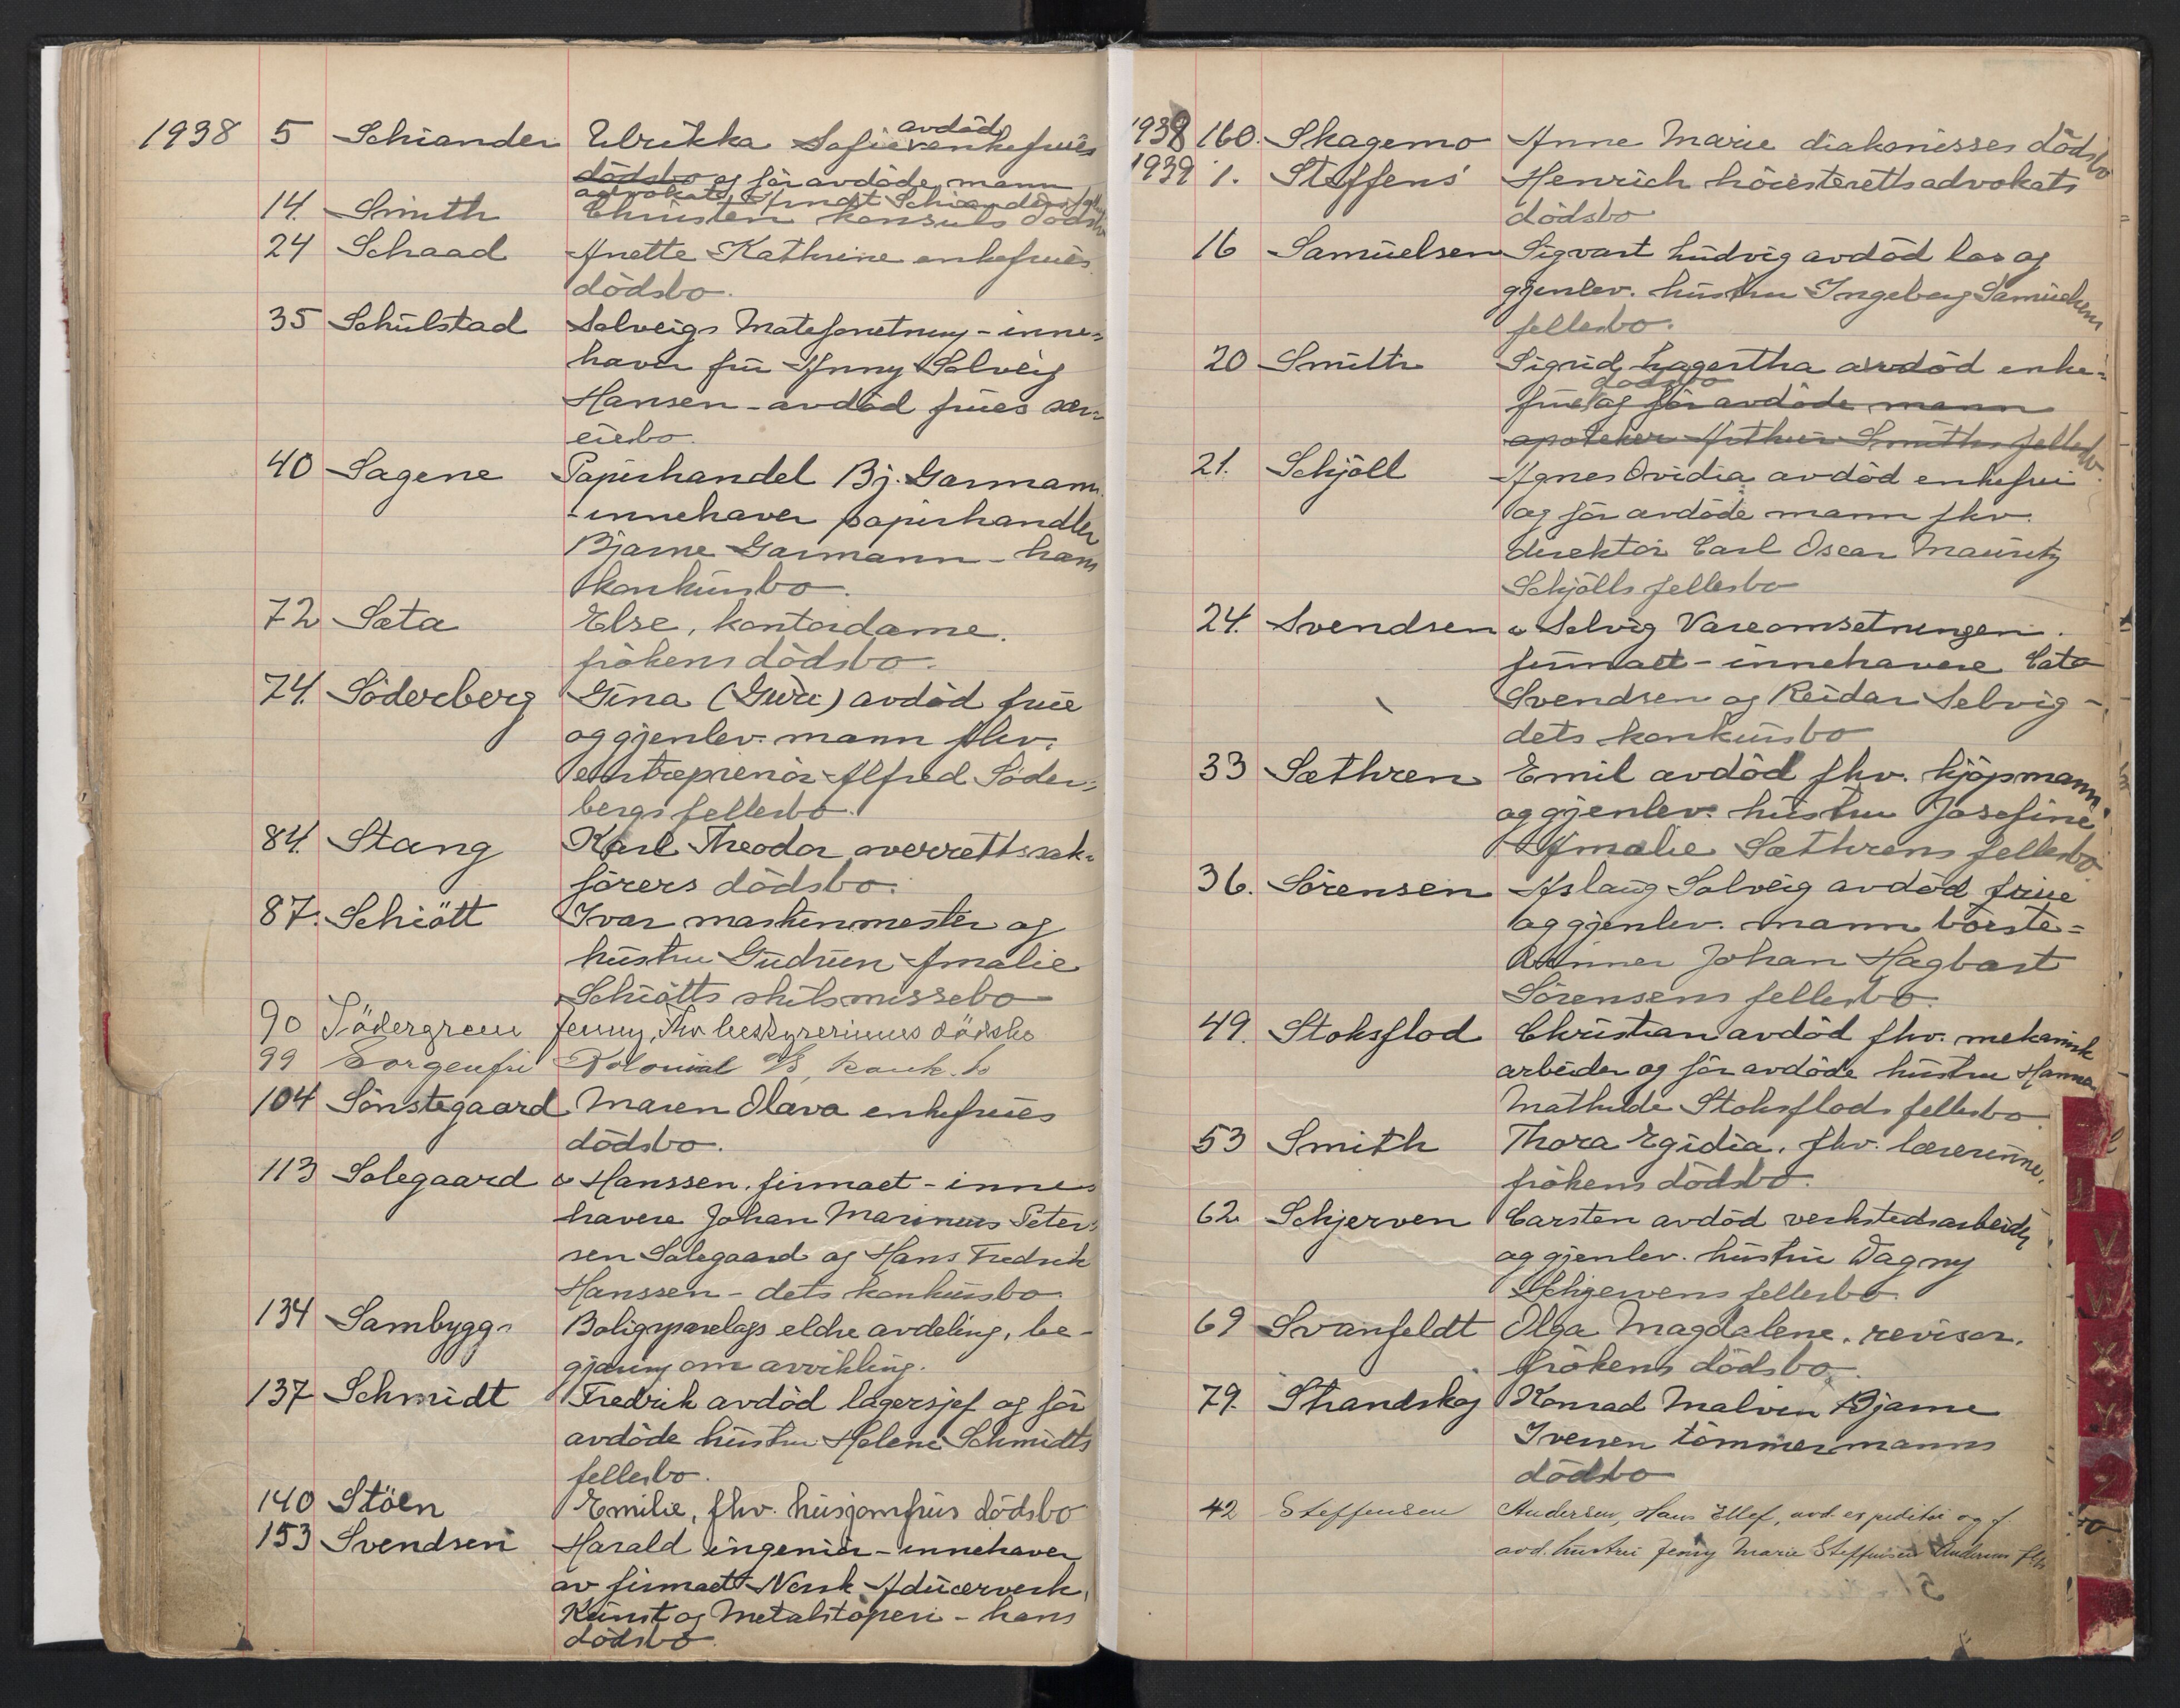 1938 5 Schiander Ulrikka Sofie avdød enkefrues
dødsbo og før avdøde mann
advokats Arndt Schianders
14. Smith Christen konsuls dødsbo
24 Schaad Anette Kathrine enkefrues
dødsbo.
35 Schulstad Solveigs Matforretning - inne-
haver fru Anny Solveig
Hansen - avdød frues sær-
eiebo.
40 Sagene Papirhandel Bj. Garmann
- innehaver papirhandler
Bjarne Garmann - hans
konkursbo.
72 Sæta Else, kontordame.
frøkens dødsbo.
74. Söderberg Gina (Guri) avdød frue
og gjenlev. mann fhv.
entreprenør Alfred Söder-
bergs fellesbo.
84. Stang Karl Theodor overrettssak-
førers dødsbo.
87. Schiött Ivar maskinmester og
hustru Gudrun Amalie
Schiøtts skilsmissebo
90 Södergreen Jenny, fhv. bestyrerinnes dødsbo
99 Sorgenfri Kolonial A/S, konk.bo
104 Sönstegaard Maren Olava enkefrues
dødsbo.
113 Solegaard & Hanssen. firmaet - inne-
havere Johan Marinius Peter-
sen Solegaard og Hans Fredrik
Hanssen - dets konkursbo
134 Sambygg- Boligsparelags eldre avdeling, be-
gjæring om avvikling.
137 Schmidt Fredrik avdød lagersjef og før
avdøde hustru Helene Schmidts
fellesbo.
140 Stöen Emilie, fhv. husjomfrus dødsbo
153 Svendsen Harald ingeniør - innehaver
av firmaet Norsk Aducerverk,
Kunst og Metalstøperi - hans
dødsbo
1938 160. Skagemo Anne Marie diakonisses dødsbo
1939 1. Steffens Henrich höiesterettsadvokats
dødsbo
16 Samuelsen Sigvart Ludvig avdød los og
gjenlev. hustru Ingeborg Samuelsens
fellesbo.
20 Smith Sigrid Lagertha avdød enke-
frues dødsbo og før avdøde mann
apoteker Arthur Smiths fellesbo.
21. Schjöll Agnes Ovidia avdød enkefrue
og før avdøde mann fhv.
direktør Carl Oscar Mauritz
Schjölls fellesbo
24. Svendsen & Selvig Vareomsetningen.
firmaet - innehavere Cato
Svendsen og Reidar Selvig -
dets konkursbo
33 Sæthren Emil avdød fhv. kjøpmann
og gjenlev. hustru Josefine
Amalie Sæthrens fellesbo
36. Sörensen Aslaug Solveig avdød frue
og gjenlev. mann børste-
binner Johan Hagbart
Sørensens fellesbo.
49. Stoksflod Christian avdød fhv. mekanisk
arbeider og før avdøde hustru Hanna
Mathilde Stoksflods fellesbo.
53 Smith Thora Egidia. fhv. lærerinne.
frøkens dødsbo.
62 Schjerven Carsten avdød verkstedsarbeider
og gjenlev. hustru Dagny
Schjervens fellesbo.
69 Svanfeldt Olga Magdalene. revisor.
frøkens dødsbo.
79. Strandskog Konrad Malvin Bjarne
Iversen tømmermanns
dødsbo
42 Steffensen Andersen, Hans Ellef, avd. expeditør og f.
avd. hustru Jenny Marie Steffensen Andersens
V
W
X
Y